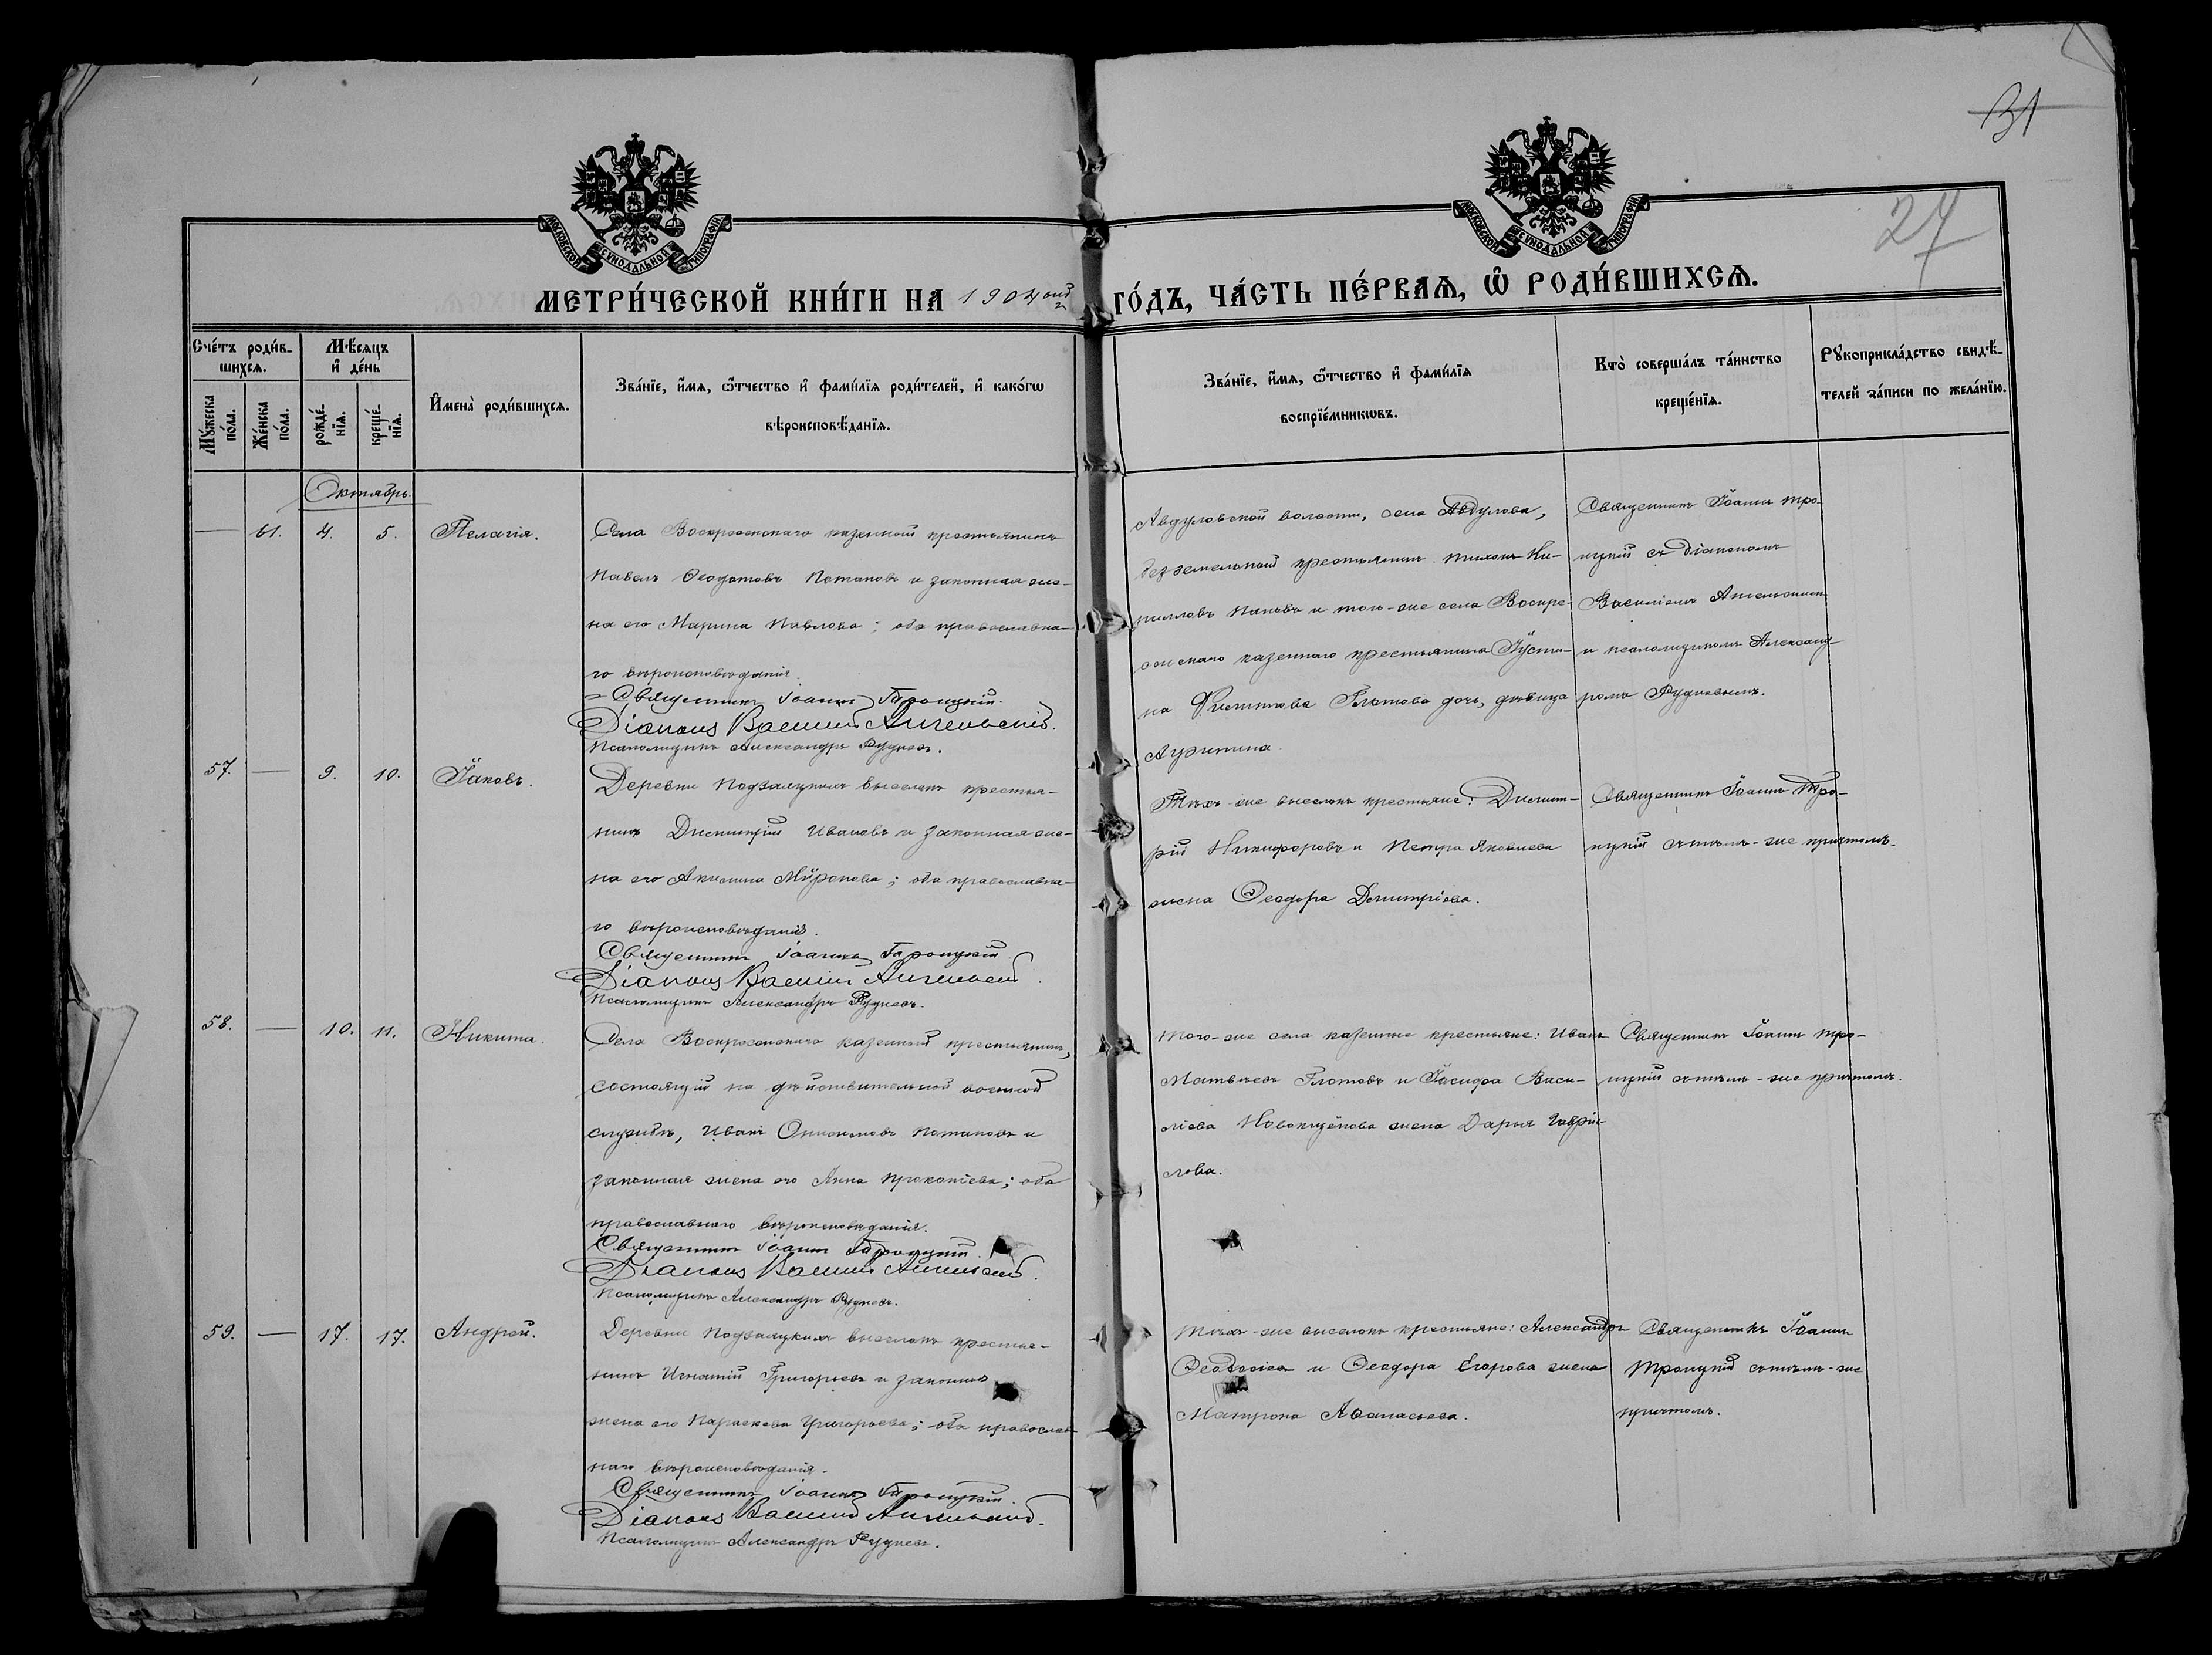 31
27
МОСКОВСКОЙ СѴНОДАЛЬНОЙ ТИПОГРАФІИ
МОСКОВСКОЙ СѴНОДАЛЬНОЙ ТИПОГРАФІИ
МЕТРИ́ЧЕСКОЙ КНИ́ГИ НА 1904 ый
ГО́ДЪ, ЧА́СТЬ ПЕ́РВАѦ, Ѡ҆ РОДИ́ВШИХСѦ.
Сче́тъ роди́в-
шихсѧ.
Мꙋ́жеска
по́ла.
Же́нска
по́ла.
Мѣ́сѧцъ
и҆ де́нь
рожде́-
нїѧ.
креще́-
нїѧ.
И҆мена̀ роди́вшихсѧ.
Зва́нїе, и҆́мѧ, ѻ҆́тчество и҆ фами́лїѧ роди́телей, и҆ како́гѡ
вѣроисповѣ́данїѧ.
Зва́нїе, и҆́мѧ, ѻ҆́тчество и҆ фами́лїѧ
воспрїе́мникѡвъ.
Кто̀ соверша́лъ та́инство
креще́нїѧ.
Рꙋкоприкла́дство свидѣ́-
телей за́писи по жела́нїю.
Октябрь.
— 61. 4. 5. Пелагія.
Села Воскресенскаго казенный крестьянинъ
Павелъ Ѳеодотовъ Потаповъ и законная же-
на его Марина Павлова; оба православна-
го вѣроисповѣданія.
Священникъ Іоаннъ Троицкій.
Діаконъ Василій Ангельскій.
Псаломщикъ Александръ Рудневъ.
Авдуловской волости, села Авдулова,
безземельный крестьянинъ Тихонъ Ки-
рилловъ Пановъ и того-же села Воскре-
сенскаго казеннаго крестьянина Іусти-
на Глотова дочь, дѣвица
Агрипина.
Священникъ Іоаннъ Тро-
ицкій съ діакономъ
Василіемъ Ангельскимъ
и псаломщикомъ Александ-
ромъ Рудневымъ.
57. — 9. 10. Іаковъ.
Деревни Подзалуцкихъ выселокъ крестья-
нинъ Димитрій Ивановъ и законная же-
на его Акилина Миронова; оба православна-
го вѣроисповѣданія.
Священникъ Іоаннъ Троицкій
Діаконъ Василій Ангельскій.
Псаломщикъ Александръ Рудневъ.
Тѣхъ-же выселокъ крестьяне: Димит-
рій Никифоровъ и Петра Яковлева
жена Ѳеодора Димитріева.
Священникъ Іоаннъ Тро-
ицкій съ тѣмъ-же причтомъ.
58. — 10. 11. Никита.
Села Воскресенскаго казенный крестьянинъ,
состоящій на дѣйствительной военной
службѣ, Иванъ Онисимовъ Потаповъ и
законная жена его Анна Прокопіева; оба
православнаго вѣроисповѣданія.
Священникъ Іоаннъ Троицкій.
Діаконъ Василій Ангельскій.
Псаломщикъ Александръ Рудневъ.
Того-же села казенные крестьяне: Иванъ
Матвѣевъ Глотовъ и Іосифа Васи-
ліева Новокщенова жена Дарья Гаврі-
лова.
Священникъ Іоаннъ Тро-
ицкій съ тѣмъ-же причтомъ.
59. — 17. 17. Андрей.
Деревни Подзалуцкихъ выселокъ крестья-
нинъ Игнатій Григорьевъ и законная
жена его Параскева Григорьева; оба православ-
наго вѣроисповѣданія.
Священникъ Іоаннъ Троицкій.
Діаконъ Василій Ангельскій.
Псаломщикъ Александръ Рудневъ.
Тѣхъ-же выселокъ крестьяне: Александръ
Ѳеодосіевъ и Ѳеодора Егорова жена
Матрона Аѳанасьева.
Священникъ Іоаннъ
Троицкій съ тѣмъ-же
причтомъ.